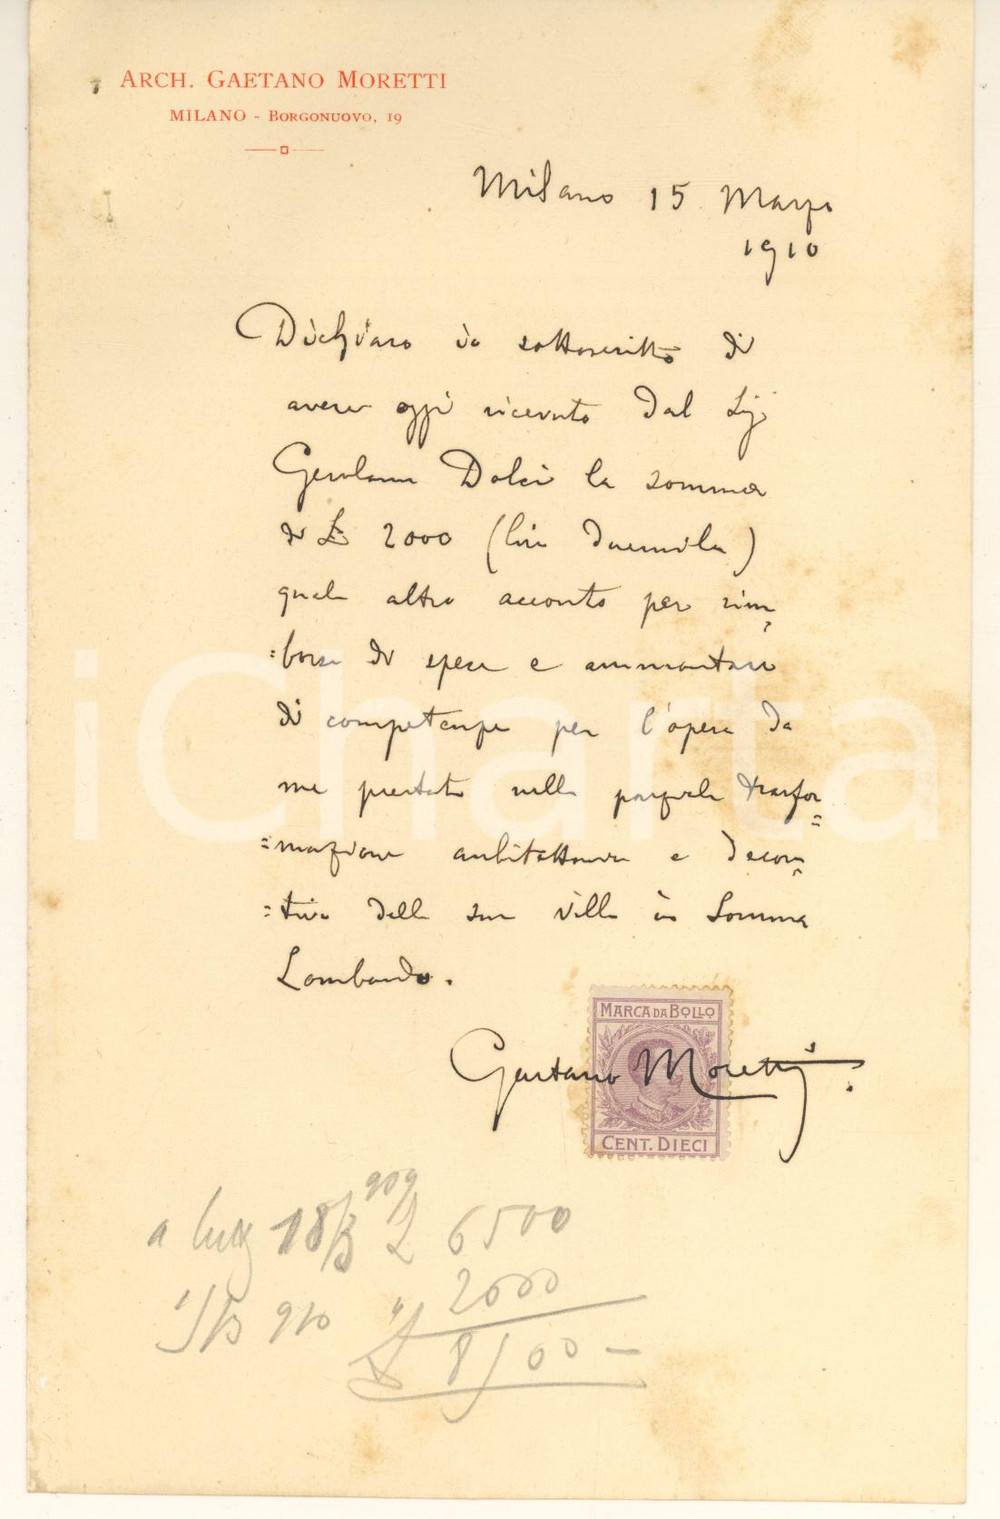 ARCH. GAETANO MORETTI
MILANO - BORGONUOVO, 19
Milano 15 Marzo
1910
Dichiaro io sottoscritto di
avere oggi ricevuto dal Sig
Gerolamo Dolci la somma
di £ 2000 (lire duemila)
quale altro acconto per rim
=borso di spese e ammontare
di competenze per l'opera da
me prestata nella parziale trasfor
=mazione architettonica e decora
=tiva della sua villa in Somma
Lombardo.
MARCA DA BOLLO
Gaetano Moretti
CENT. DIECI
909
a 18/3 £ 6500
15/3 910 " 2000
£ 8500 -
iCharta